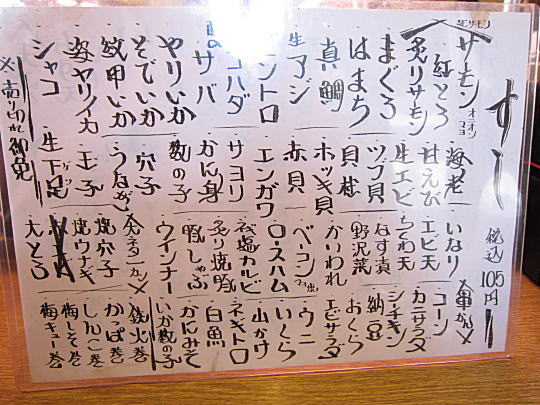 すし 税込 105円
生サーモン
サーモン オニオンマヨ
紅とろ
炙りサーモン
まぐろ
はまち
真鯛
生アジ
ントロ
コハダ
サバ
やりいか
そでいか
紋甲いか
姿ヤリイカ
シャコ
※売り切れ御免
海老
甘えび
生エビ
ツブ貝
貝柱
ホッキ貝
赤貝
エンガワ
サヨリ
かに身
数の子
穴子
うなぎ
玉子
生下足 ゲソ
いなり
エビ天
ちくわ天
なす漬
野沢菜
かいわれ
ベーコン
ロースハム
ネギ塩カルビ
炙り焼豚
豚しゃぶ
ウインナー
焼穴子
焼ウナギ
大とろ
軍かん
コーン
カニサラダ
シーチキン
納豆
おくら
エビサラダ
ウニ
いくら
山かけ
ネギトロ
白魚
かにみそ
いか数の子
鉄火巻
かっぱ巻
しんこ巻
梅しそ巻
梅キュー巻